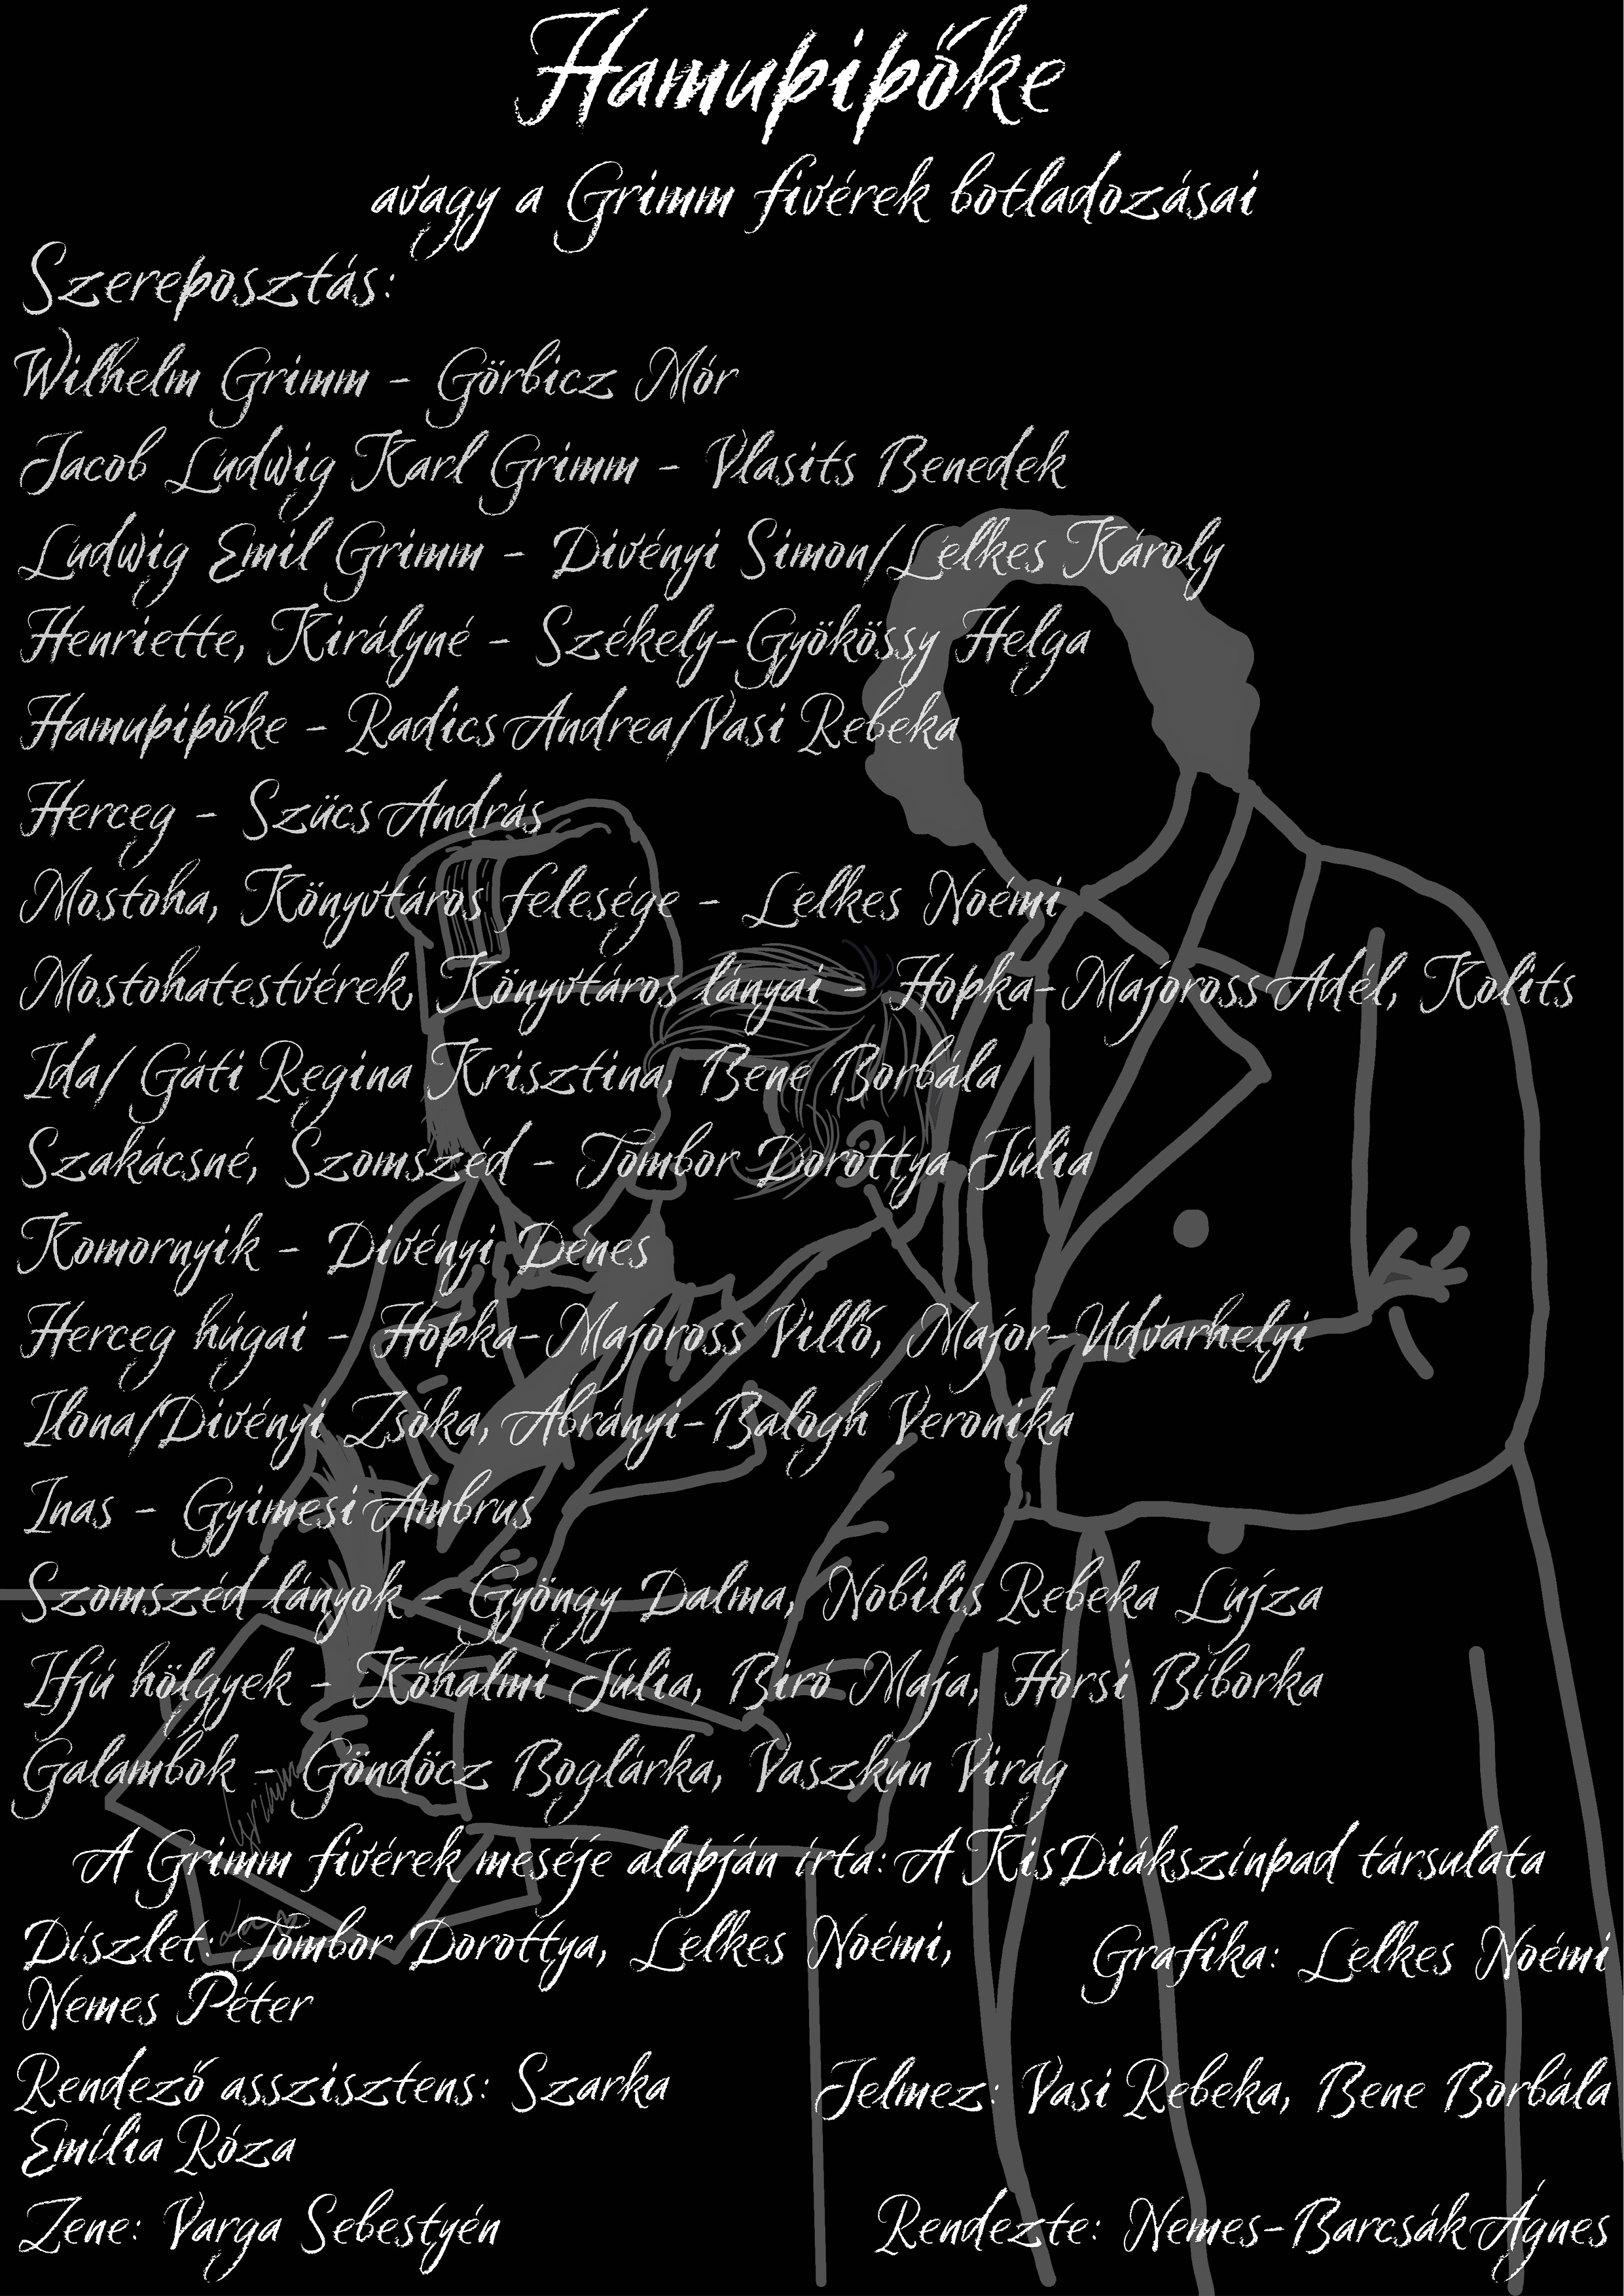 Hamupipőke
avagy a Grimm fivérek botladozásai
Szereposztás:
Wilhelm Grimm - Görbicz Mór
Jacob Ludwig Karl Grimm - Vlasits Benedek
Ludwig Emil Grimm - Divényi Simon/Lelkes Károly
Henriette, Királyné - Székely-Gyökössy Helga
Hamupipőke - Radics Andrea/Vasi Rebeka
Herceg - Szücs András
Mostoha, Könyvtáros felesége - Lelkes Noémi
Mostohatestvérek, Könyvtáros lányai - Hopka-Majoross Adél, Kolits
Ida/ Gáti Regina Krisztina, Bene Borbála
Szakácsné, Szomszéd - Tombor Dorottya Júlia
Komornyik - Divényi Dénes
Herceg húgai - Hopka-Majoross Villő, Major-Udvarhelyi
Ilona/Divényi Zsóka, Ábrányi-Balogh Veronika
Inas - Gyimesi Ambrus
Szomszéd lányok - Gyöngy Dalma, Nobilis Rebeka Lujza
Ifjú hölgyek - Kőhalmi Júlia, Biró Maja, Horsi Bíborka
Galambok - Göndöcz Boglárka, Vaszkun Virág
Grimm
A Grimm fivérek meséje alapján írta: A KisDiákszínpad társulata
Díszlet: Tombor Dorottya, Lelkes Noémi,
Nemes Péter
Grafika: Lelkes Noémi
Rendező asszisztens: Szarka
Emília Róza
Jelmez: Vasi Rebeka, Bene Borbála
Zene: Varga Sebestyén
Rendezte: Nemes-Barcsák Ágnes